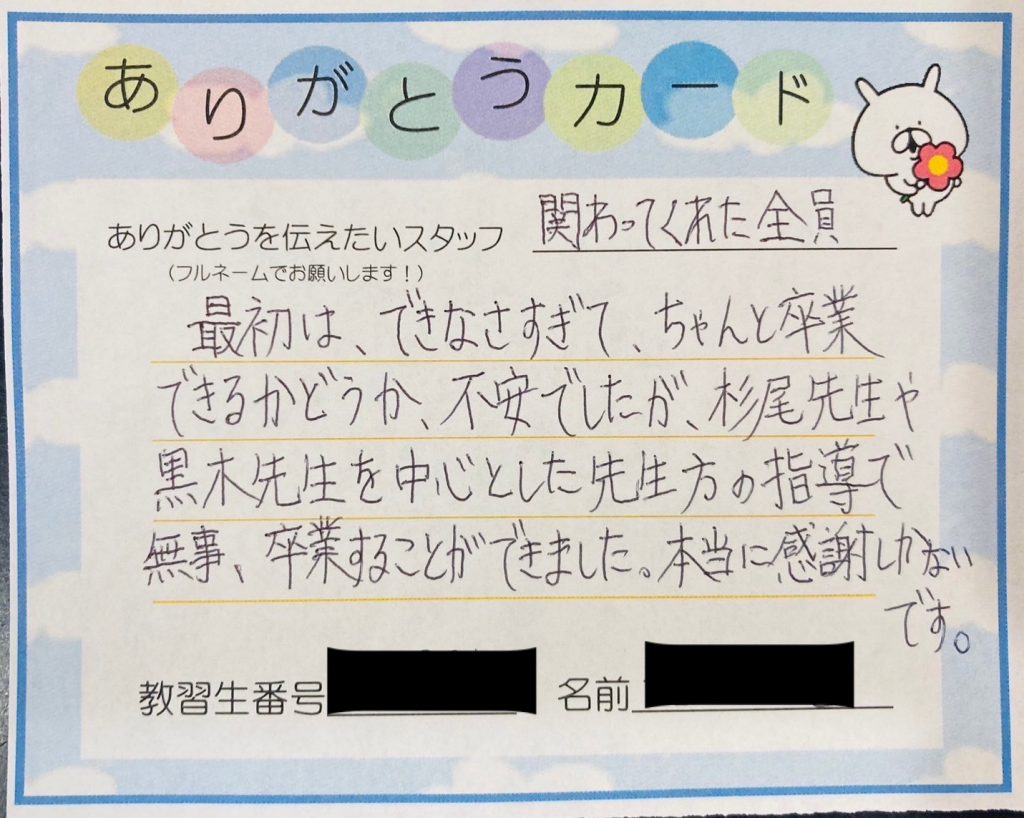 ありがとうカード
ありがとうを伝えたいスタッフ 関わってくれた全員
（フルネームでお願いします！）
最初は、できなさすぎて、ちゃんと卒業
できるかどうか、不安でしたが、杉尾先生や
黒木先生を中心とした先生方の指導で
無事、卒業することができました。本当に感謝しかない
です。
教習生番号 名前